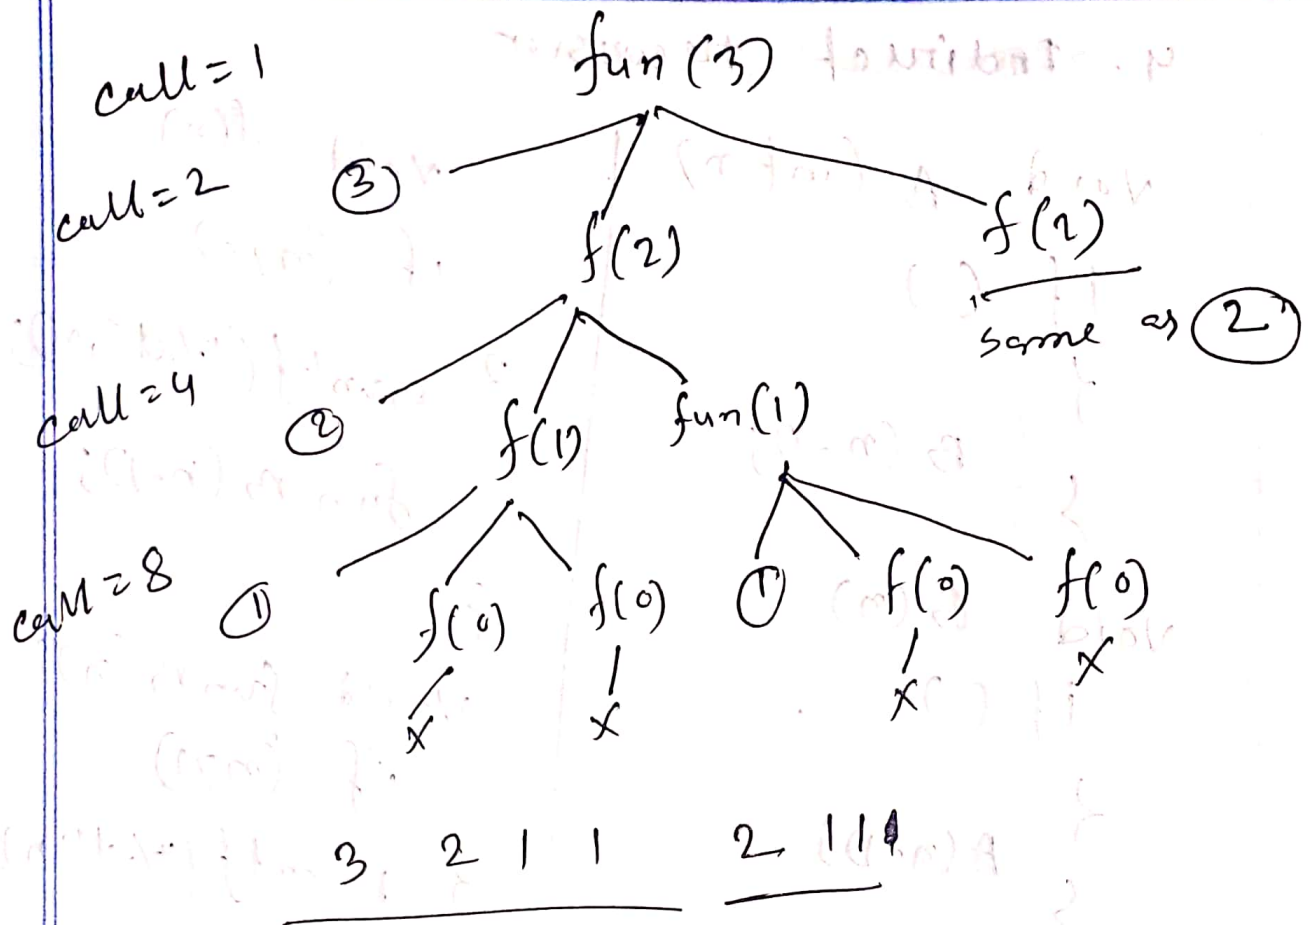 call=1 fun(3)
call=2 3 f(2) f(2)
same as 2
call=4 2 f(1) fun(1)
call=8 1 f(0) f(0) 1 f(0) f(0)
x x x x
3 2 1 1 2 1 1